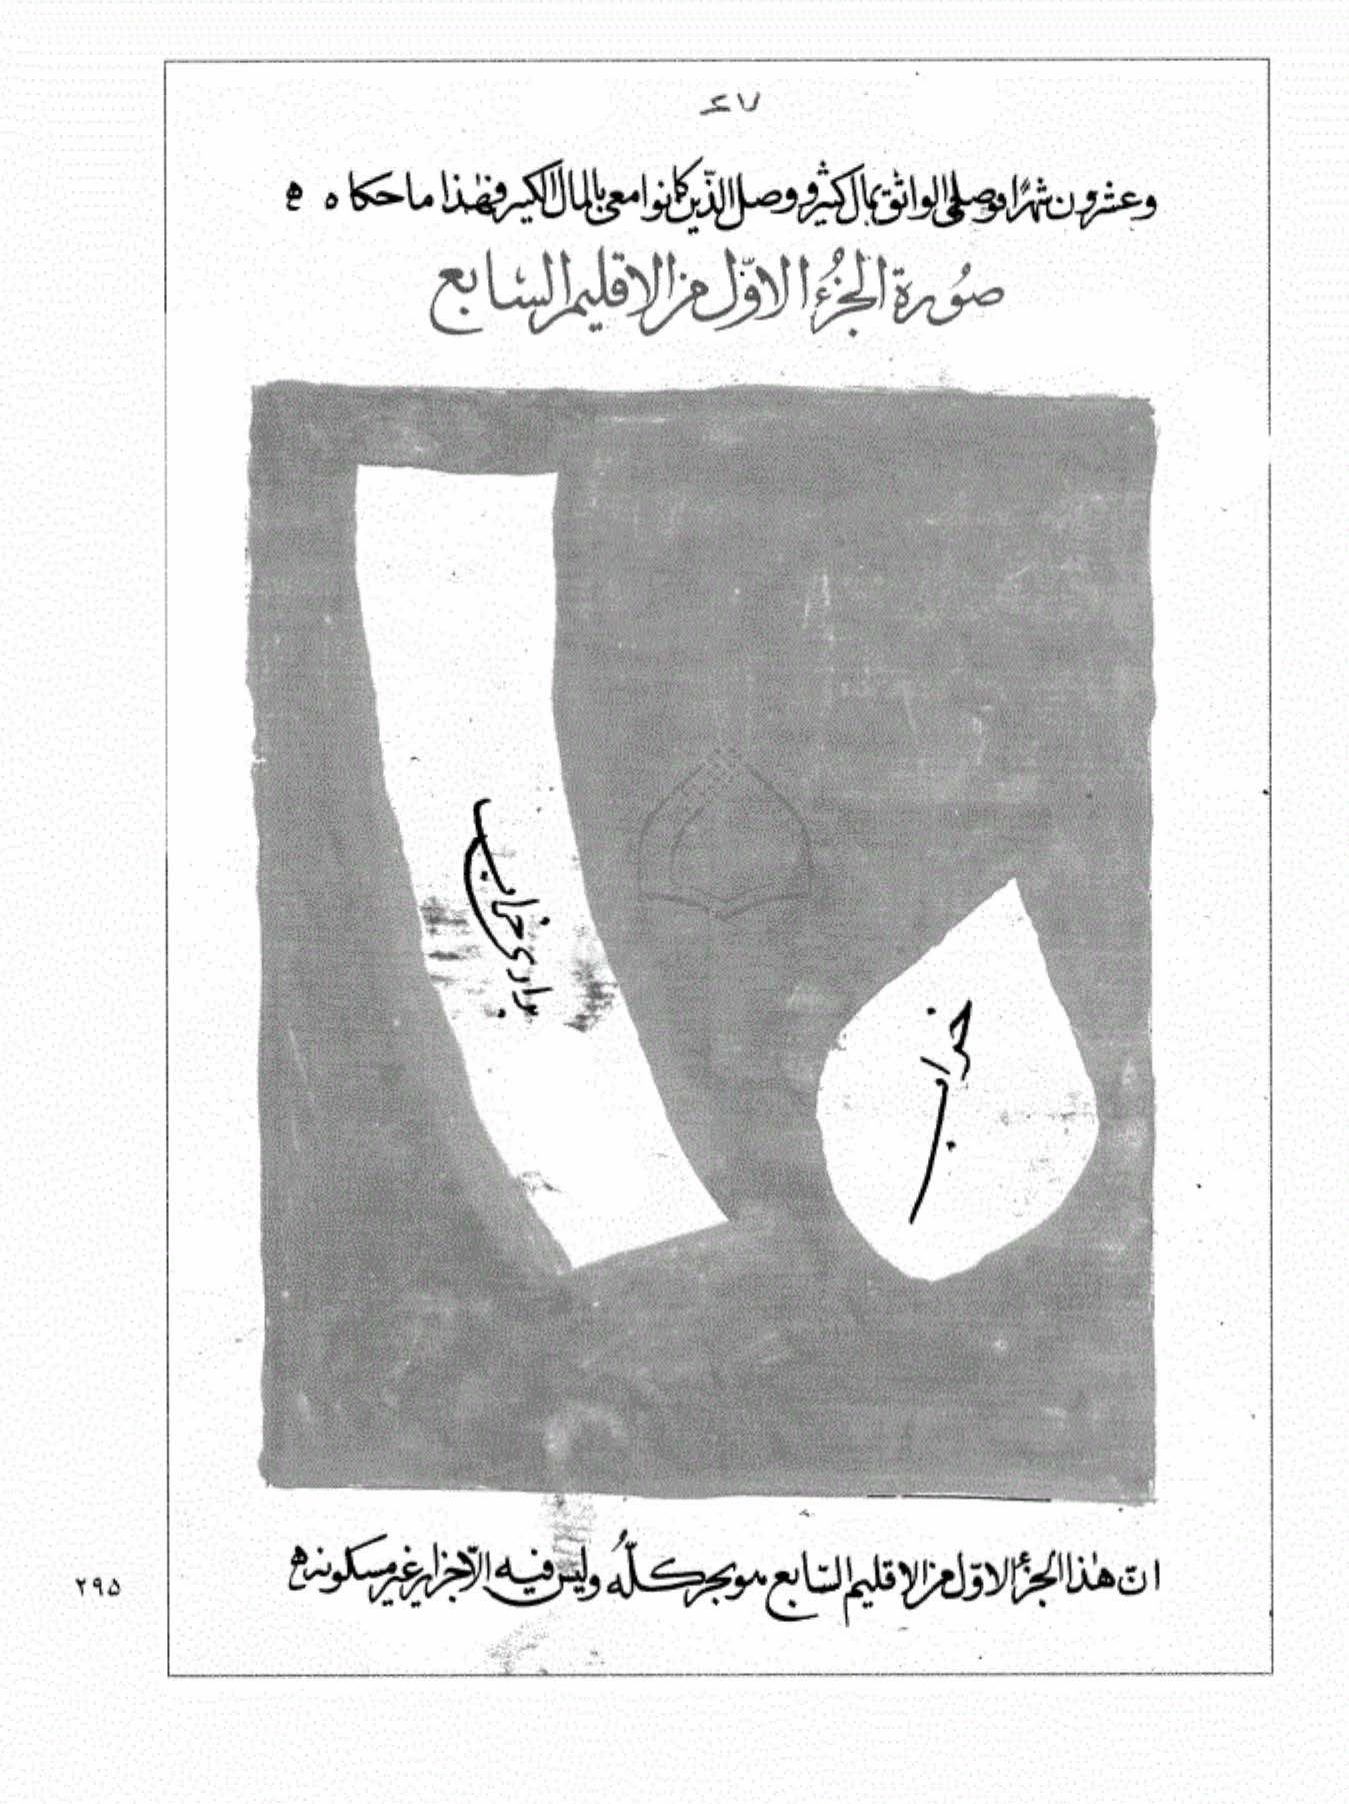 ٤٧
وعشرون شهرًا ووصلني الواثق بمال كثير ووصل الذّين كانوا معي بالمال الكبير فهٰذا ما حكاه ه
صُورة الجُزءُ الاوّل من الاقليم السّابع
براري خراب
خراب
انّ هٰذا الجزءُ الاوّل من الاقليم السّابع هو بحر كلّهُ وليس فيه الّا جزاير غير مسكونه ه
٢٩٥